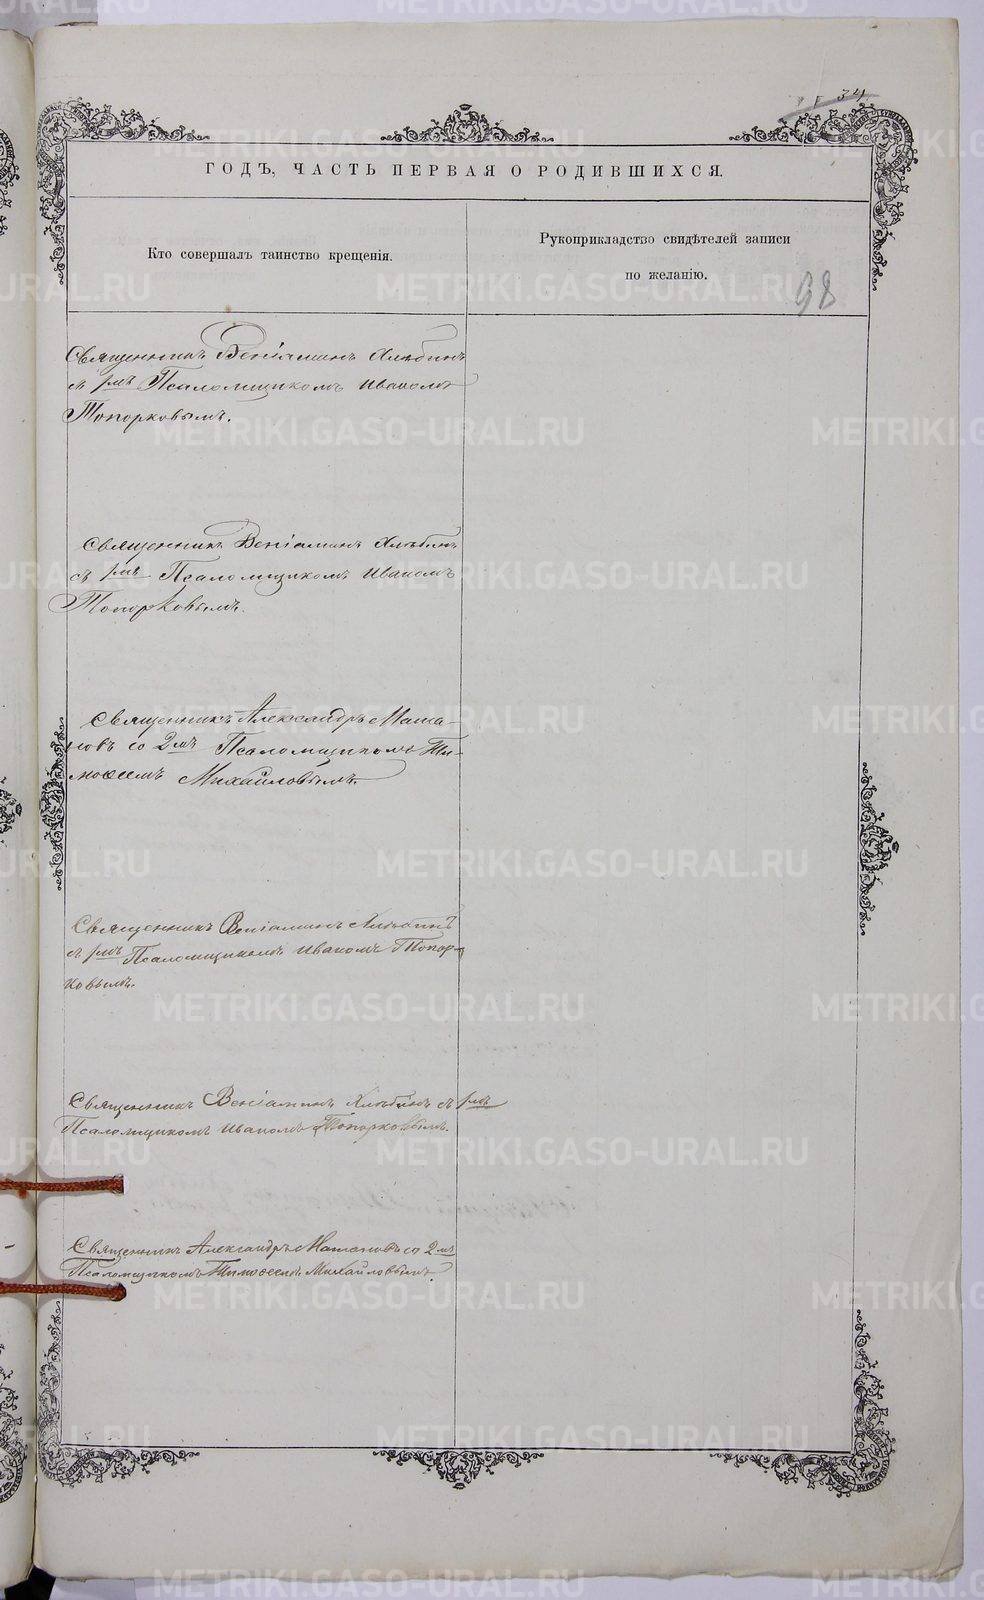 34
ГОДЪ, ЧАСТЬ ПЕРВАЯ О РОДИВШИХСЯ.
Кто совершалъ таинство крещенія.
Рукоприкладство свидѣтелей записи
по желанію.
98
Священникъ Веніаминъ Хлѣбинъ
съ 1мъ Псаломщикомъ Иваномъ
Топорковымъ.
Священникъ Веніаминъ Хлѣбинъ
съ 1мъ Псаломщикомъ Иваномъ
Топорковымъ.
Священникъ Александръ Маша-
новъ со 2мъ Псаломщикомъ Ти-
моѳеемъ Михайловымъ.
Священникъ Веніаминъ Хлѣбинъ
съ 1мъ Псаломщикомъ Иваномъ Топор-
ковымъ.
Священникъ Веніаминъ Хлѣбинъ съ 1мъ
Псаломщикомъ Иваномъ Топорковымъ.
Священникъ Александръ Машановъ со 2мъ
Псаломщикомъ Тимоѳеемъ Михайловымъ.
METRIKI.GASO-URAL.RU